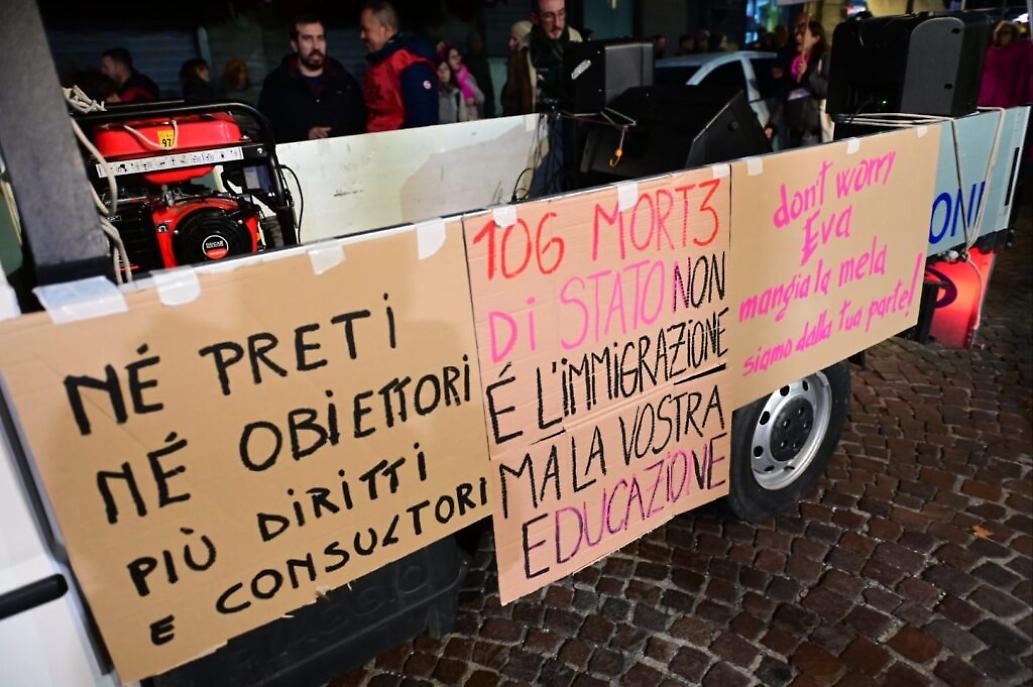 NÉ PRETI
NÉ OBIETTORI
PIÙ DIRITTI
E CONSULTORI
106 MORT3
DI STATO NON
É L'IMMIGRAZIONE
MA LA VOSTRA
EDUCAZIONE
don't worry
Eva
mangia la mela
siamo dalla tua parte!
ONI
97